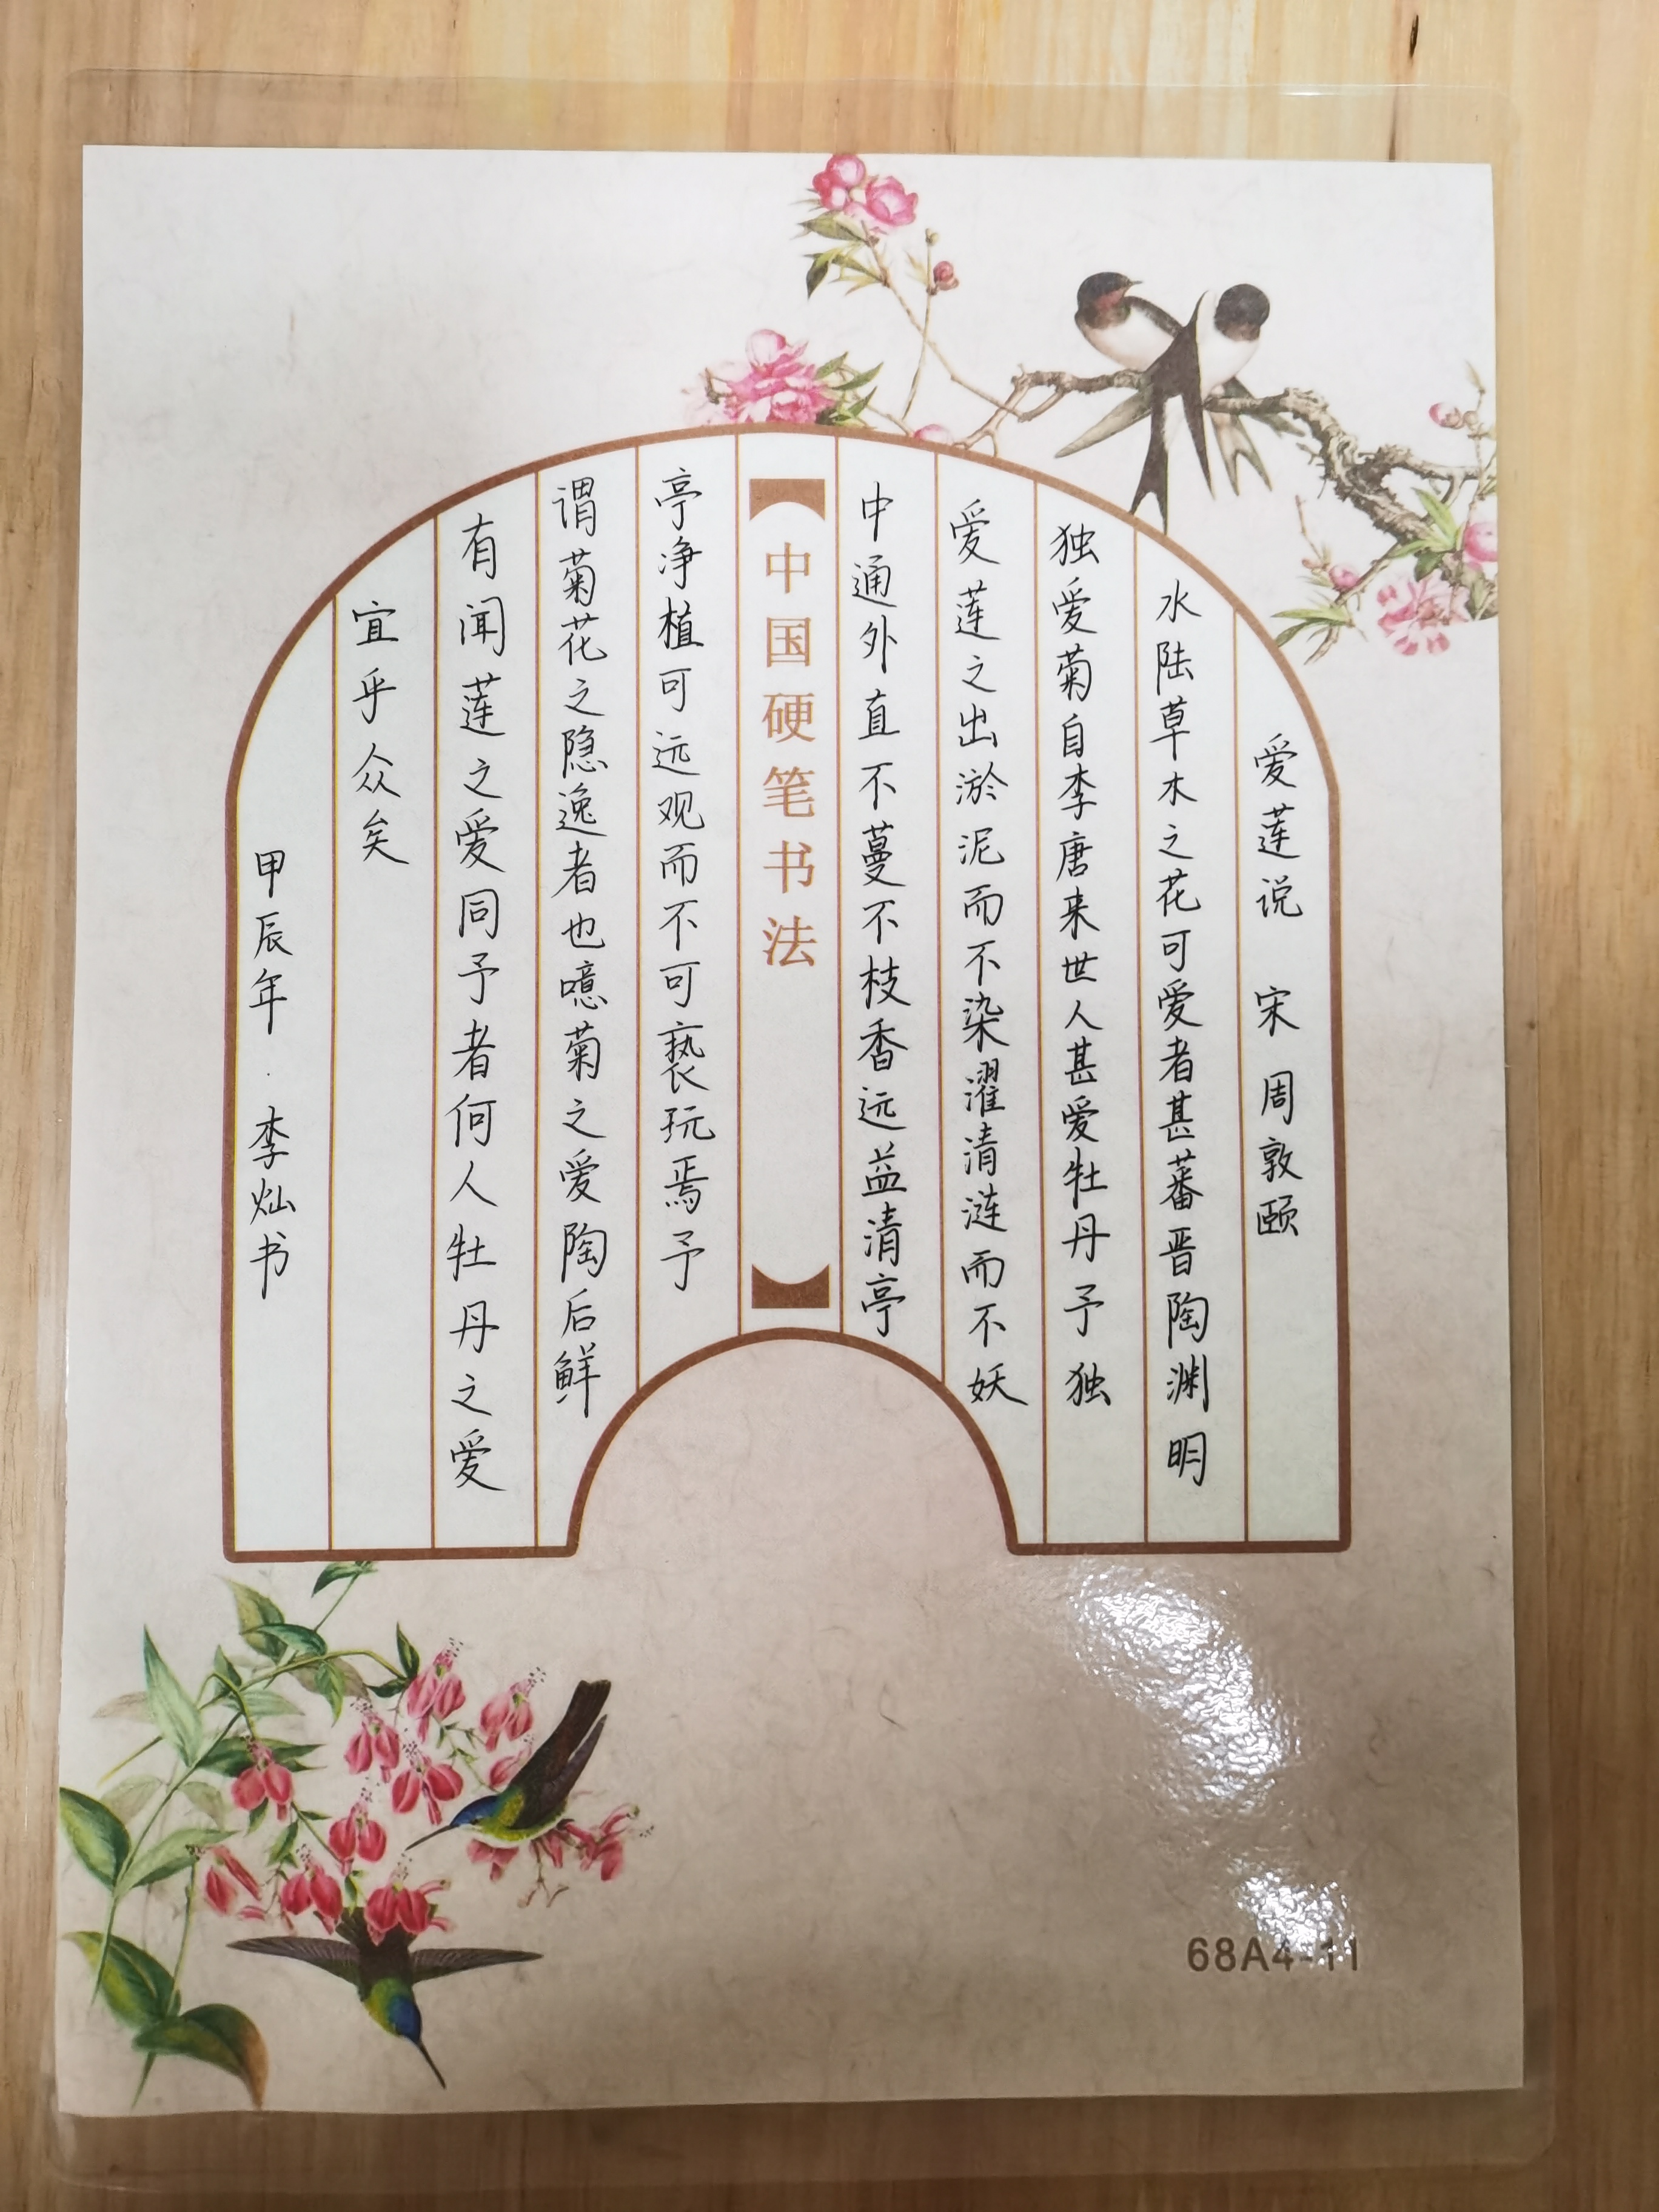 爱莲说 宋 周敦颐
水陆草木之花可爱者甚蕃晋陶渊明
独爱菊自李唐来世人甚爱牡丹予独
爱莲之出淤泥而不染濯清涟而不妖
中通外直不蔓不枝香远益清亭
中国硬笔书法
亭净植可远观而不可亵玩焉予
谓菊花之隐逸者也噫菊之爱陶后鲜
有闻莲之爱同予者何人牡丹之爱
宜乎众矣
甲辰年·李灿书
68A4-11